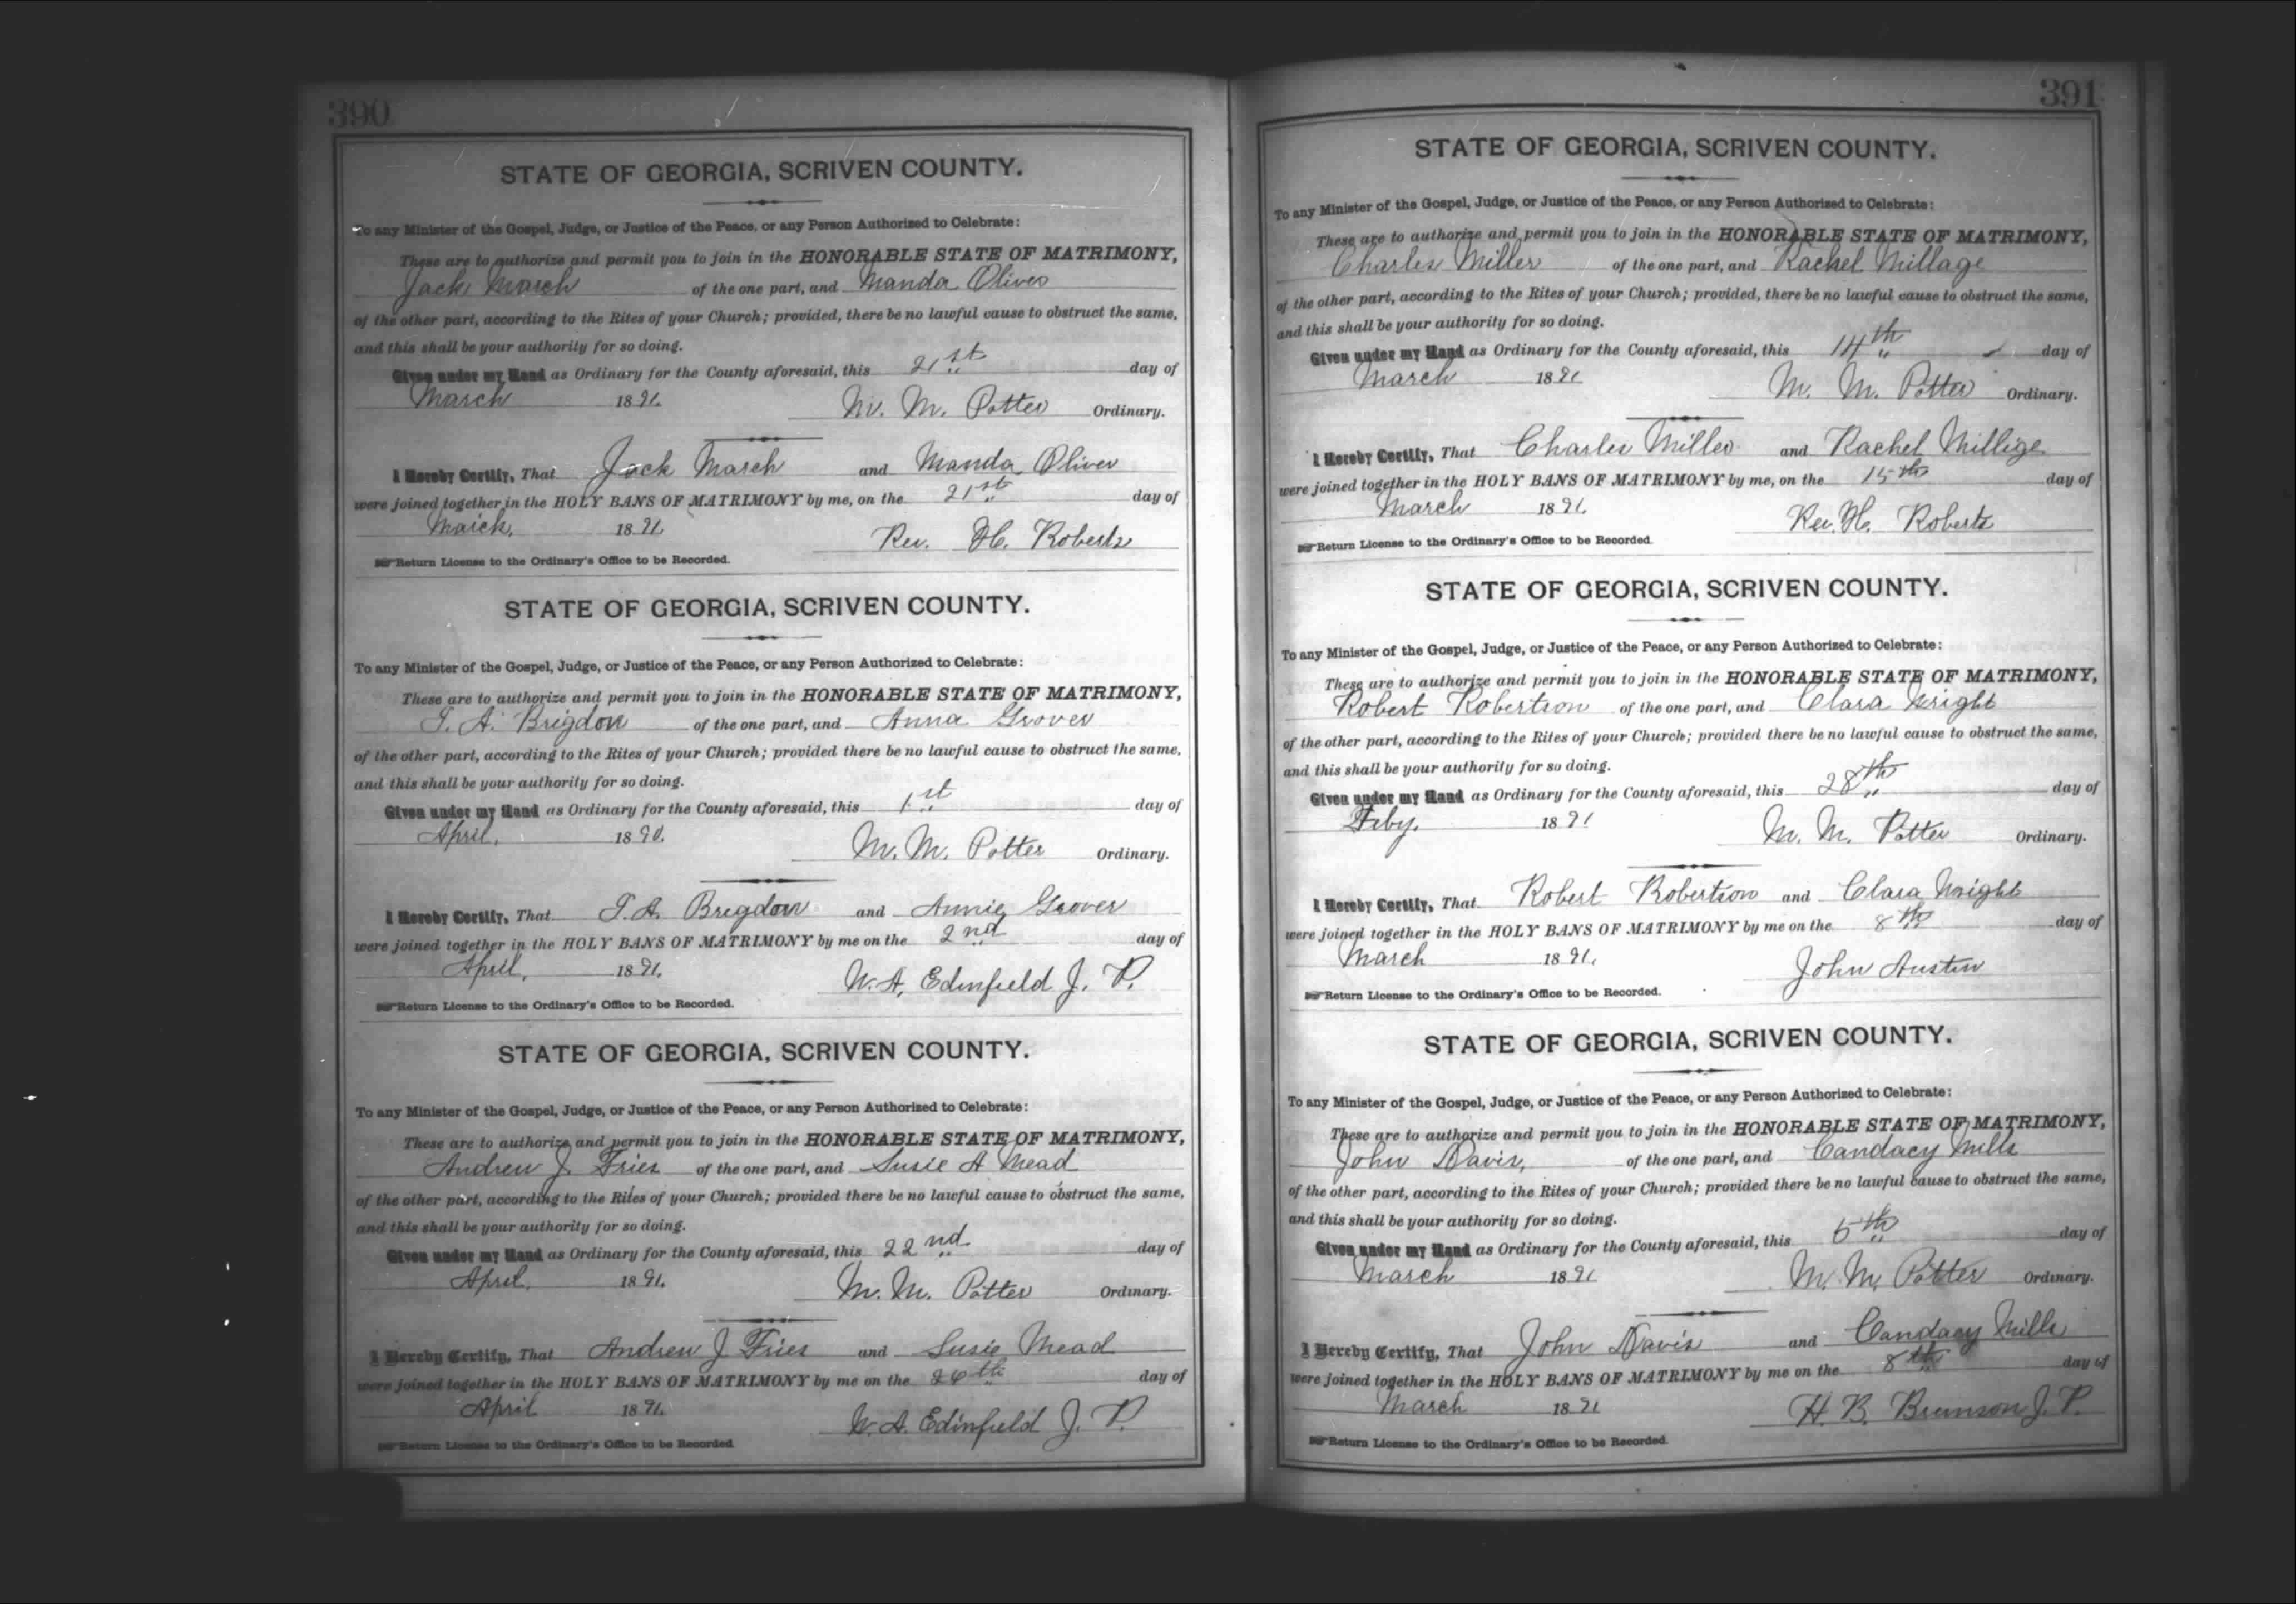 390
STATE OF GEORGIA, SCRIVEN COUNTY.
To any Minister of the Gospel, Judge, or Justice of the Peace, or any Person Authorized to Celebrate:
These are to authorize and permit you to join in the HONORABLE STATE OF MATRIMONY,
Jack March of the one part, and Manda Oliver
of the other part, according to the Rites of your Church; provided, there be no lawful cause to obstruct the same,
and this shall be your authority for so doing.
Given under my Hand as Ordinary for the County aforesaid, this 21st day of
March 1891. M. M. Potter Ordinary.
I Hereby Certify, That Jack March and Manda Oliver
were joined together in the HOLY BANS OF MATRIMONY by me, on the 21st day of
March, 1891. Rev. H. Roberts
Return License to the Ordinary's Office to be Recorded.
STATE OF GEORGIA, SCRIVEN COUNTY.
To any Minister of the Gospel, Judge, or Justice of the Peace, or any Person Authorized to Celebrate:
These are to authorize and permit you to join in the HONORABLE STATE OF MATRIMONY,
A. Brigdon of the one part, and Anna Grover
of the other part, according to the Rites of your Church; provided there be no lawful cause to obstruct the same,
and this shall be your authority for so doing.
Given under my Hand as Ordinary for the County aforesaid, this 1st day of
April, 1890. M. M. Potter Ordinary.
I Hereby Certify, That A. Brigdon and Annie Grover
were joined together in the HOLY BANS OF MATRIMONY by me on the 2nd day of
April, 1891. W. A. Edinfield J. P.
Return License to the Ordinary's Office to be Recorded.
STATE OF GEORGIA, SCRIVEN COUNTY.
To any Minister of the Gospel, Judge, or Justice of the Peace, or any Person Authorized to Celebrate:
These are to authorize and permit you to join in the HONORABLE STATE OF MATRIMONY,
Andrew J. Fries of the one part, and Susie A Mead
of the other part, according to the Rites of your Church; provided there be no lawful cause to obstruct the same,
and this shall be your authority for so doing.
Given under my Hand as Ordinary for the County aforesaid, this 22nd day of
April, 1891. M. M. Potter Ordinary.
I Hereby Certify, That Andrew J Fries and Susie Mead
were joined together in the HOLY BANS OF MATRIMONY by me on the 26th day of
April 1891. W. A. Edinfield J. P.
Return License to the Ordinary's Office to be Recorded.
391
STATE OF GEORGIA, SCRIVEN COUNTY.
To any Minister of the Gospel, Judge, or Justice of the Peace, or any Person Authorized to Celebrate:
These are to authorize and permit you to join in the HONORABLE STATE OF MATRIMONY,
Charles Miller of the one part, and Rachel Millage
of the other part, according to the Rites of your Church; provided, there be no lawful cause to obstruct the same,
and this shall be your authority for so doing.
Given under my Hand as Ordinary for the County aforesaid, this 14th day of
March 1891 M. M. Potter Ordinary.
I Hereby Certify, That Charles Miller and Rachel Millige
were joined together in the HOLY BANS OF MATRIMONY by me, on the 15th day of
March 1891. Rev. H. Roberts
Return License to the Ordinary's Office to be Recorded.
STATE OF GEORGIA, SCRIVEN COUNTY.
To any Minister of the Gospel, Judge, or Justice of the Peace, or any Person Authorized to Celebrate:
These are to authorize and permit you to join in the HONORABLE STATE OF MATRIMONY,
Robert Robertson of the one part, and Clara Wright
of the other part, according to the Rites of your Church; provided there be no lawful cause to obstruct the same,
and this shall be your authority for so doing.
Given under my Hand as Ordinary for the County aforesaid, this 28th day of
Feby. 1891 M. M. Potter Ordinary.
I Hereby Certify, That Robert Robertson and Clara Wright
were joined together in the HOLY BANS OF MATRIMONY by me on the 8th day of
March 1891. John Austin
Return License to the Ordinary's Office to be Recorded.
STATE OF GEORGIA, SCRIVEN COUNTY.
To any Minister of the Gospel, Judge, or Justice of the Peace, or any Person Authorized to Celebrate:
These are to authorize and permit you to join in the HONORABLE STATE OF MATRIMONY,
John Davis, of the one part, and Candacy Mills
of the other part, according to the Rites of your Church; provided there be no lawful cause to obstruct the same,
and this shall be your authority for so doing.
Given under my Hand as Ordinary for the County aforesaid, this day of
March 1891 M. M. Potter Ordinary.
I Hereby Certify, That John Davis and Candacy Mills
were joined together in the HOLY BANS OF MATRIMONY by me on the 8th day of
March 1891 H. B. Brunson J. P.
Return License to the Ordinary's Office to be Recorded.